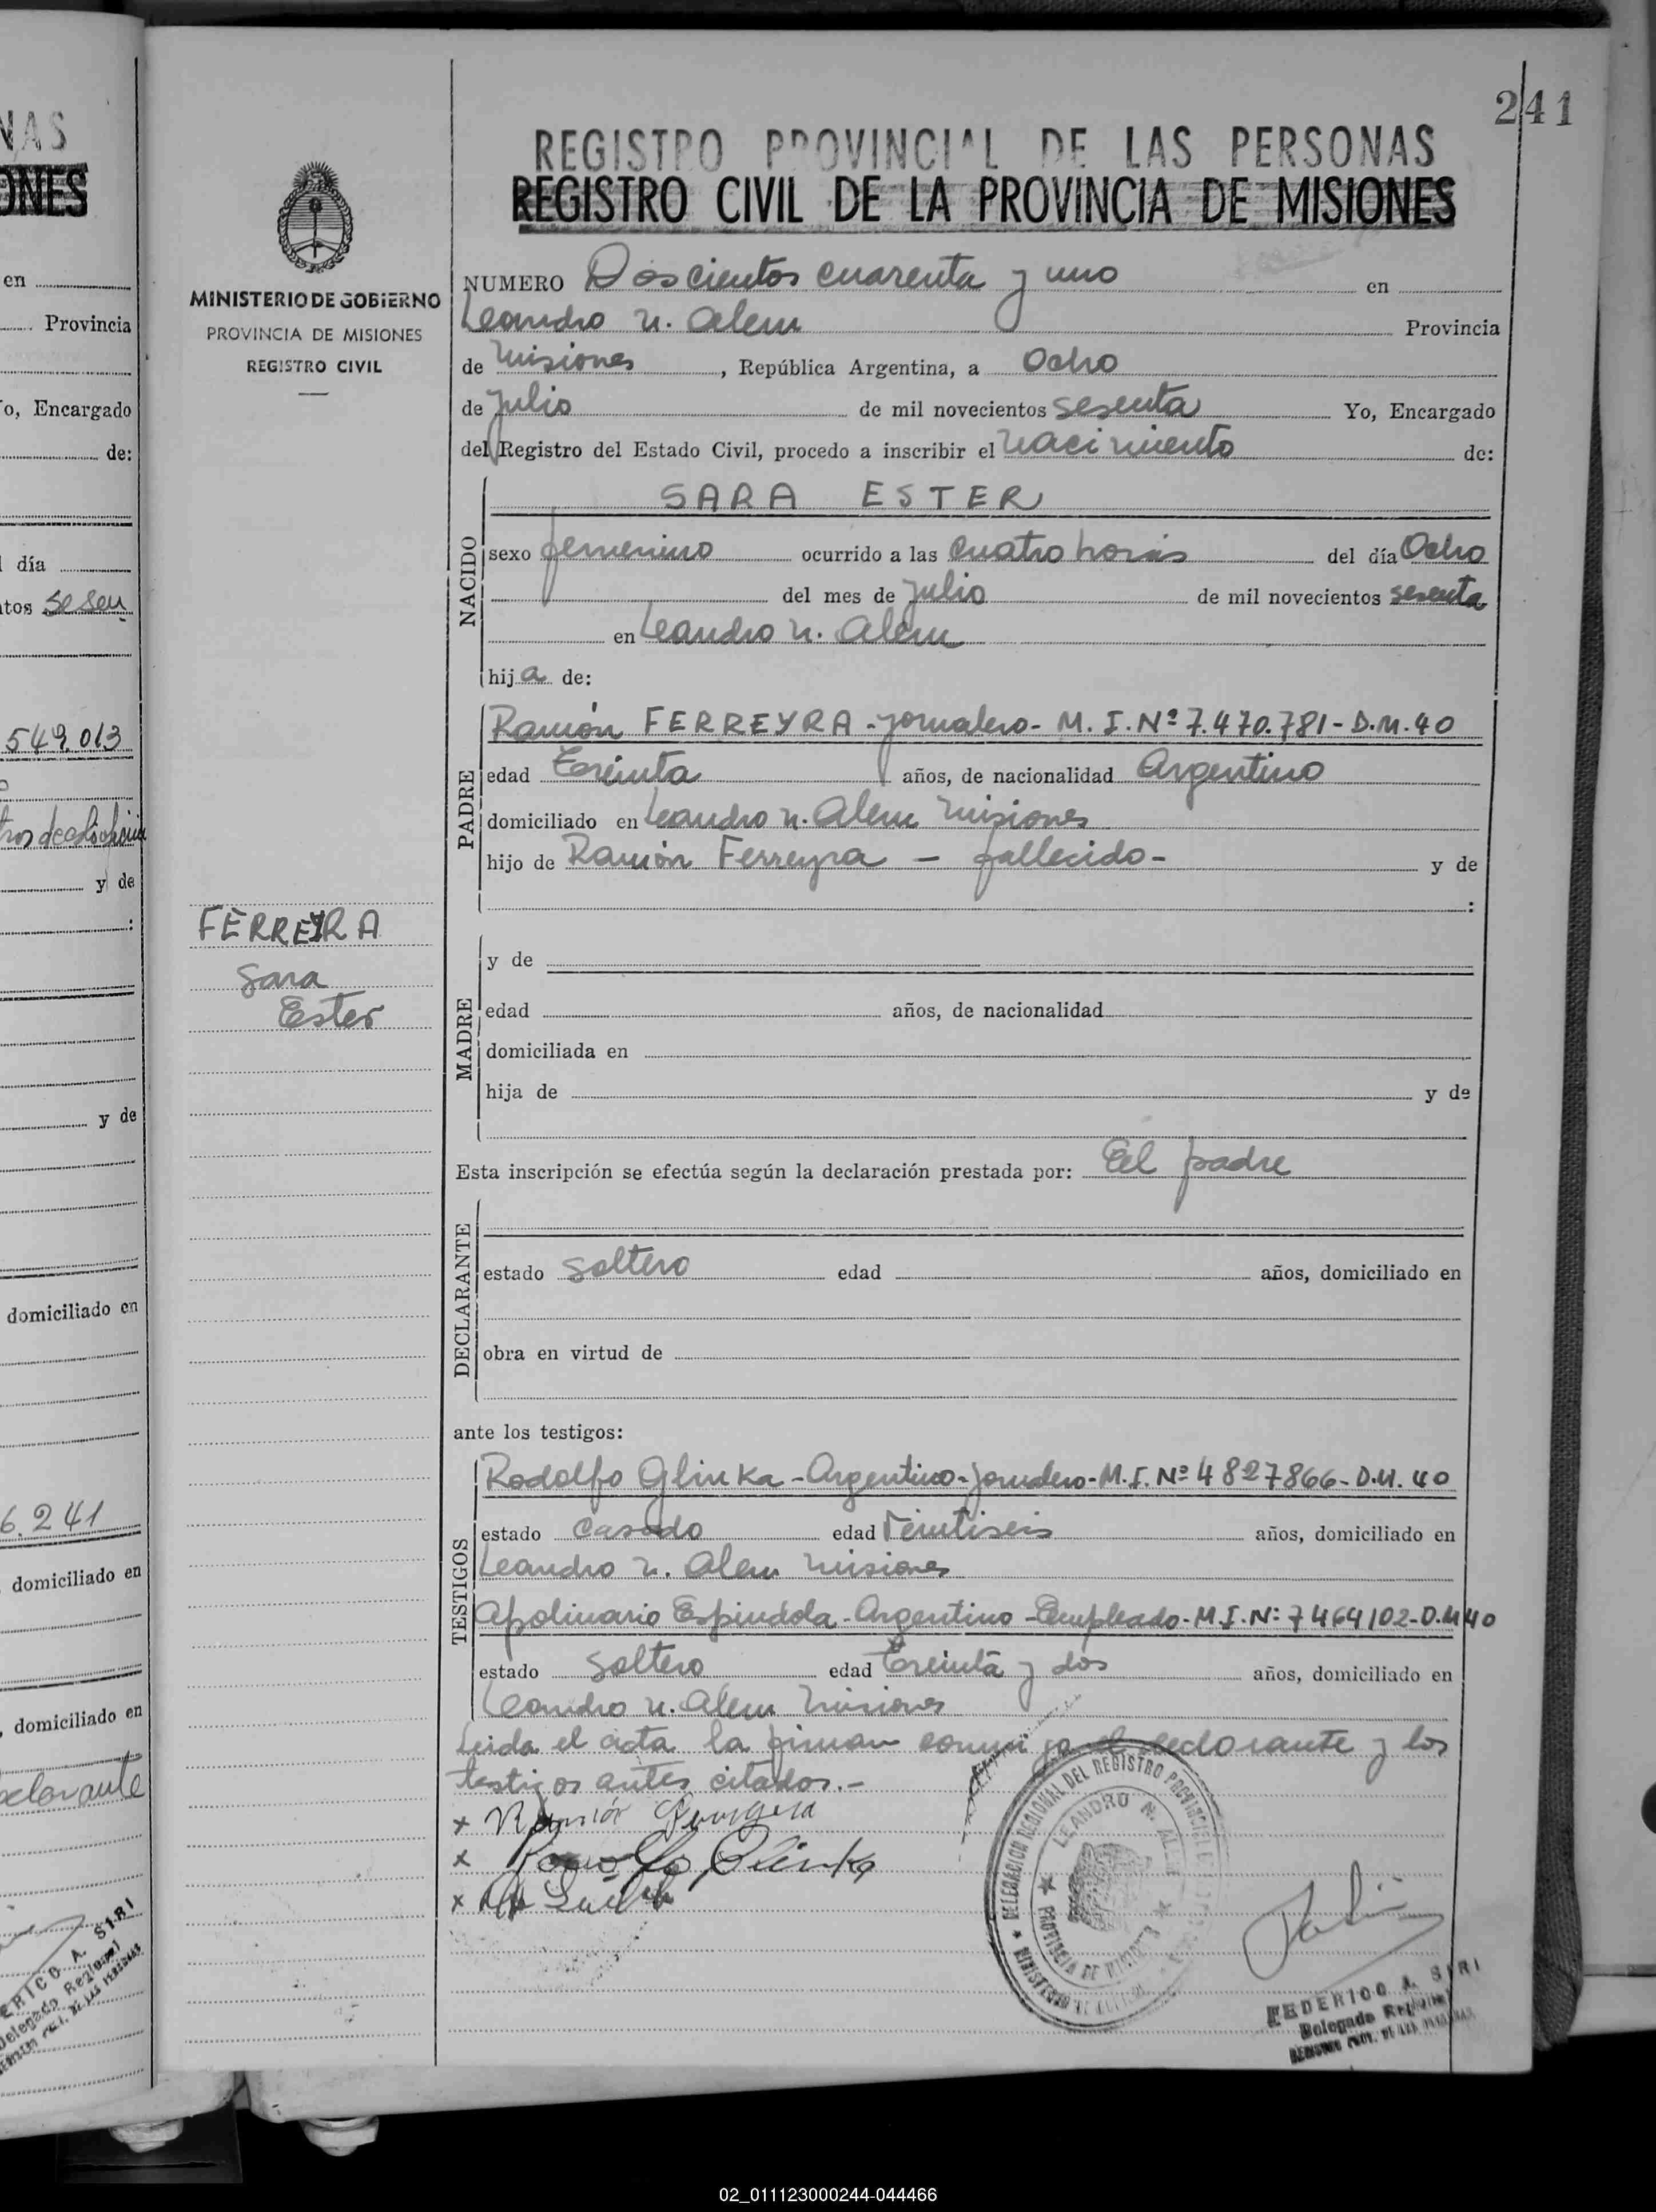 NAS
ONES
en
Provincia
o, Encargado
de:
día
tos sesen
549.013
y de
:
y de
domiciliado en
6.241
domiciliado en
, domiciliado en
declarante
ERICO A. SIRI
Delegado Regional
MINISTERIO DE GOBIERNO
PROVINCIA DE MISIONES
REGISTRO CIVIL
FERREYRA
Sara
Ester
241
REGISTRO PROVINCIAL DE LAS PERSONAS
REGISTRO CIVIL DE LA PROVINCIA DE MISIONES
NUMERO Doscientos cuarenta y uno en
Leandro N. Alem Provincia
de Misiones, República Argentina, a Ocho
de Julio de mil novecientos sesenta Yo, Encargado
del Registro del Estado Civil, procedo a inscribir el nacimiento de:
NACIDO
SARA ESTER
sexo femenino ocurrido a las cuatro horas del día Ocho
del mes de Julio de mil novecientos sesenta
en Leandro N. Alem
hija de:
PADRE
Ramón FERREYRA - jornalero - M. I. Nº 7.470.781 - D.M. 40
edad Treinta años, de nacionalidad Argentino
domiciliado en Leandro N. Alem Misiones
hijo de Ramón Ferreyra - fallecido - y de
:
MADRE
y de
edad años, de nacionalidad
domiciliada en
hija de y de
Esta inscripción se efectúa según la declaración prestada por: El padre
DECLARANTE
estado soltero edad años, domiciliado en
obra en virtud de
ante los testigos:
TESTIGOS
Rodolfo Glinka - Argentino - jornalero - M. I. Nº 4827866 - D.M. 40
estado casado edad Veintiseis años, domiciliado en
Leandro N. Alem Misiones
Apolinario Espindola - Argentino - Empleado - M. I. Nº: 7464102 - D.M 40
estado soltero edad Treinta y dos años, domiciliado en
Leandro N. Alem Misiones
Leida el acta la firman conmigo el declarante y los
testigos antes citados.-
x Ramón
x Rodolfo Glinka
x
DELEGACION REGIONAL DEL REGISTRO PROVINCIAL
LEANDRO N. ALEM
PROVINCIA DE MISIONES
FEDERICO A. SIRI
Delegado Regional
REGISTRO PROV. DE LAS PERSONAS
02_011123000244-044466